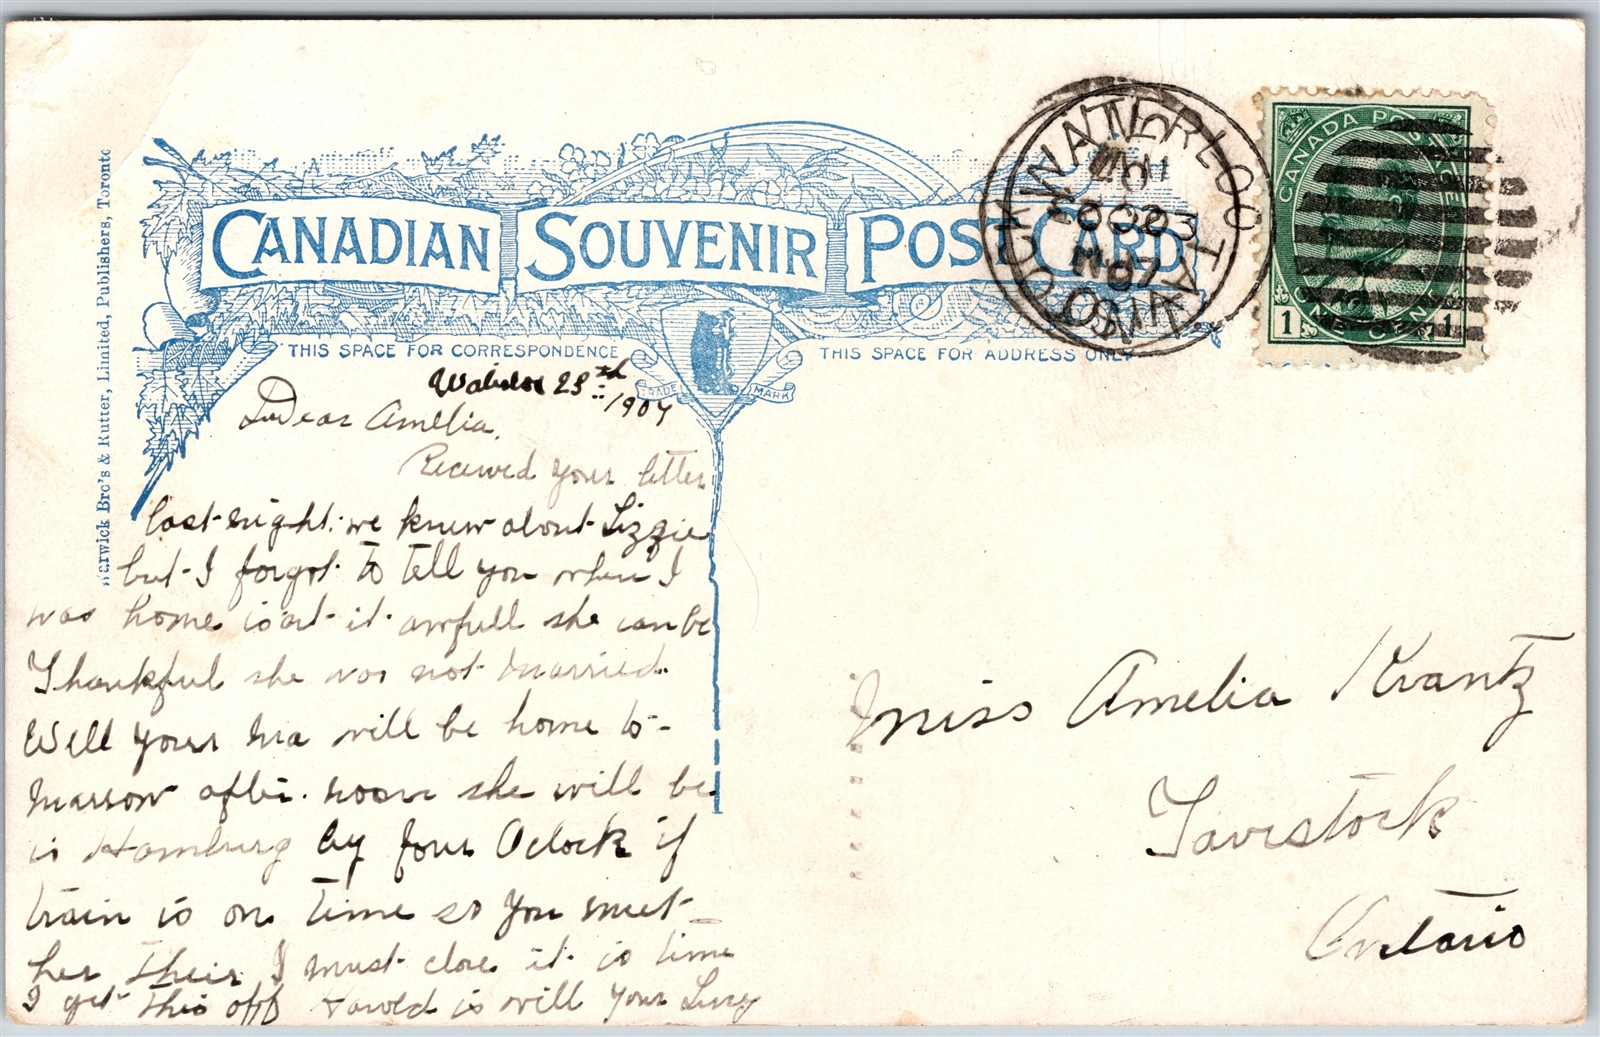 CANADIAN SOUVENIR POST CARD
THIS SPACE FOR CORRESPONDENCE
THIS SPACE FOR ADDRESS ONLY
TRADE MARK
Warwick Bro's & Rutter, Limited, Publishers, Toronto
WATERLOO
ONT
CANADA POSTAGE
1 ONE CENT 1
23rd
1907
Dear Amelia,
Received your letter
last night. we knew about Lizzie
but I forgot to tell you when I
was home isant it awfull she can be
Thankful she was not married.
Well your Ma will be home to-
marrow after noon she will be
in Hamburg by four Oclock if
train is on time so you meet
her their I must close it is time
I get this off Harold is well your
Miss Amelia Krantz
Tavistock
Ontario